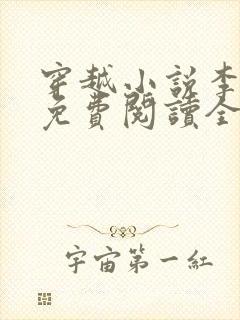 穿越小说李
免費閱讀全
宇宙第一紅